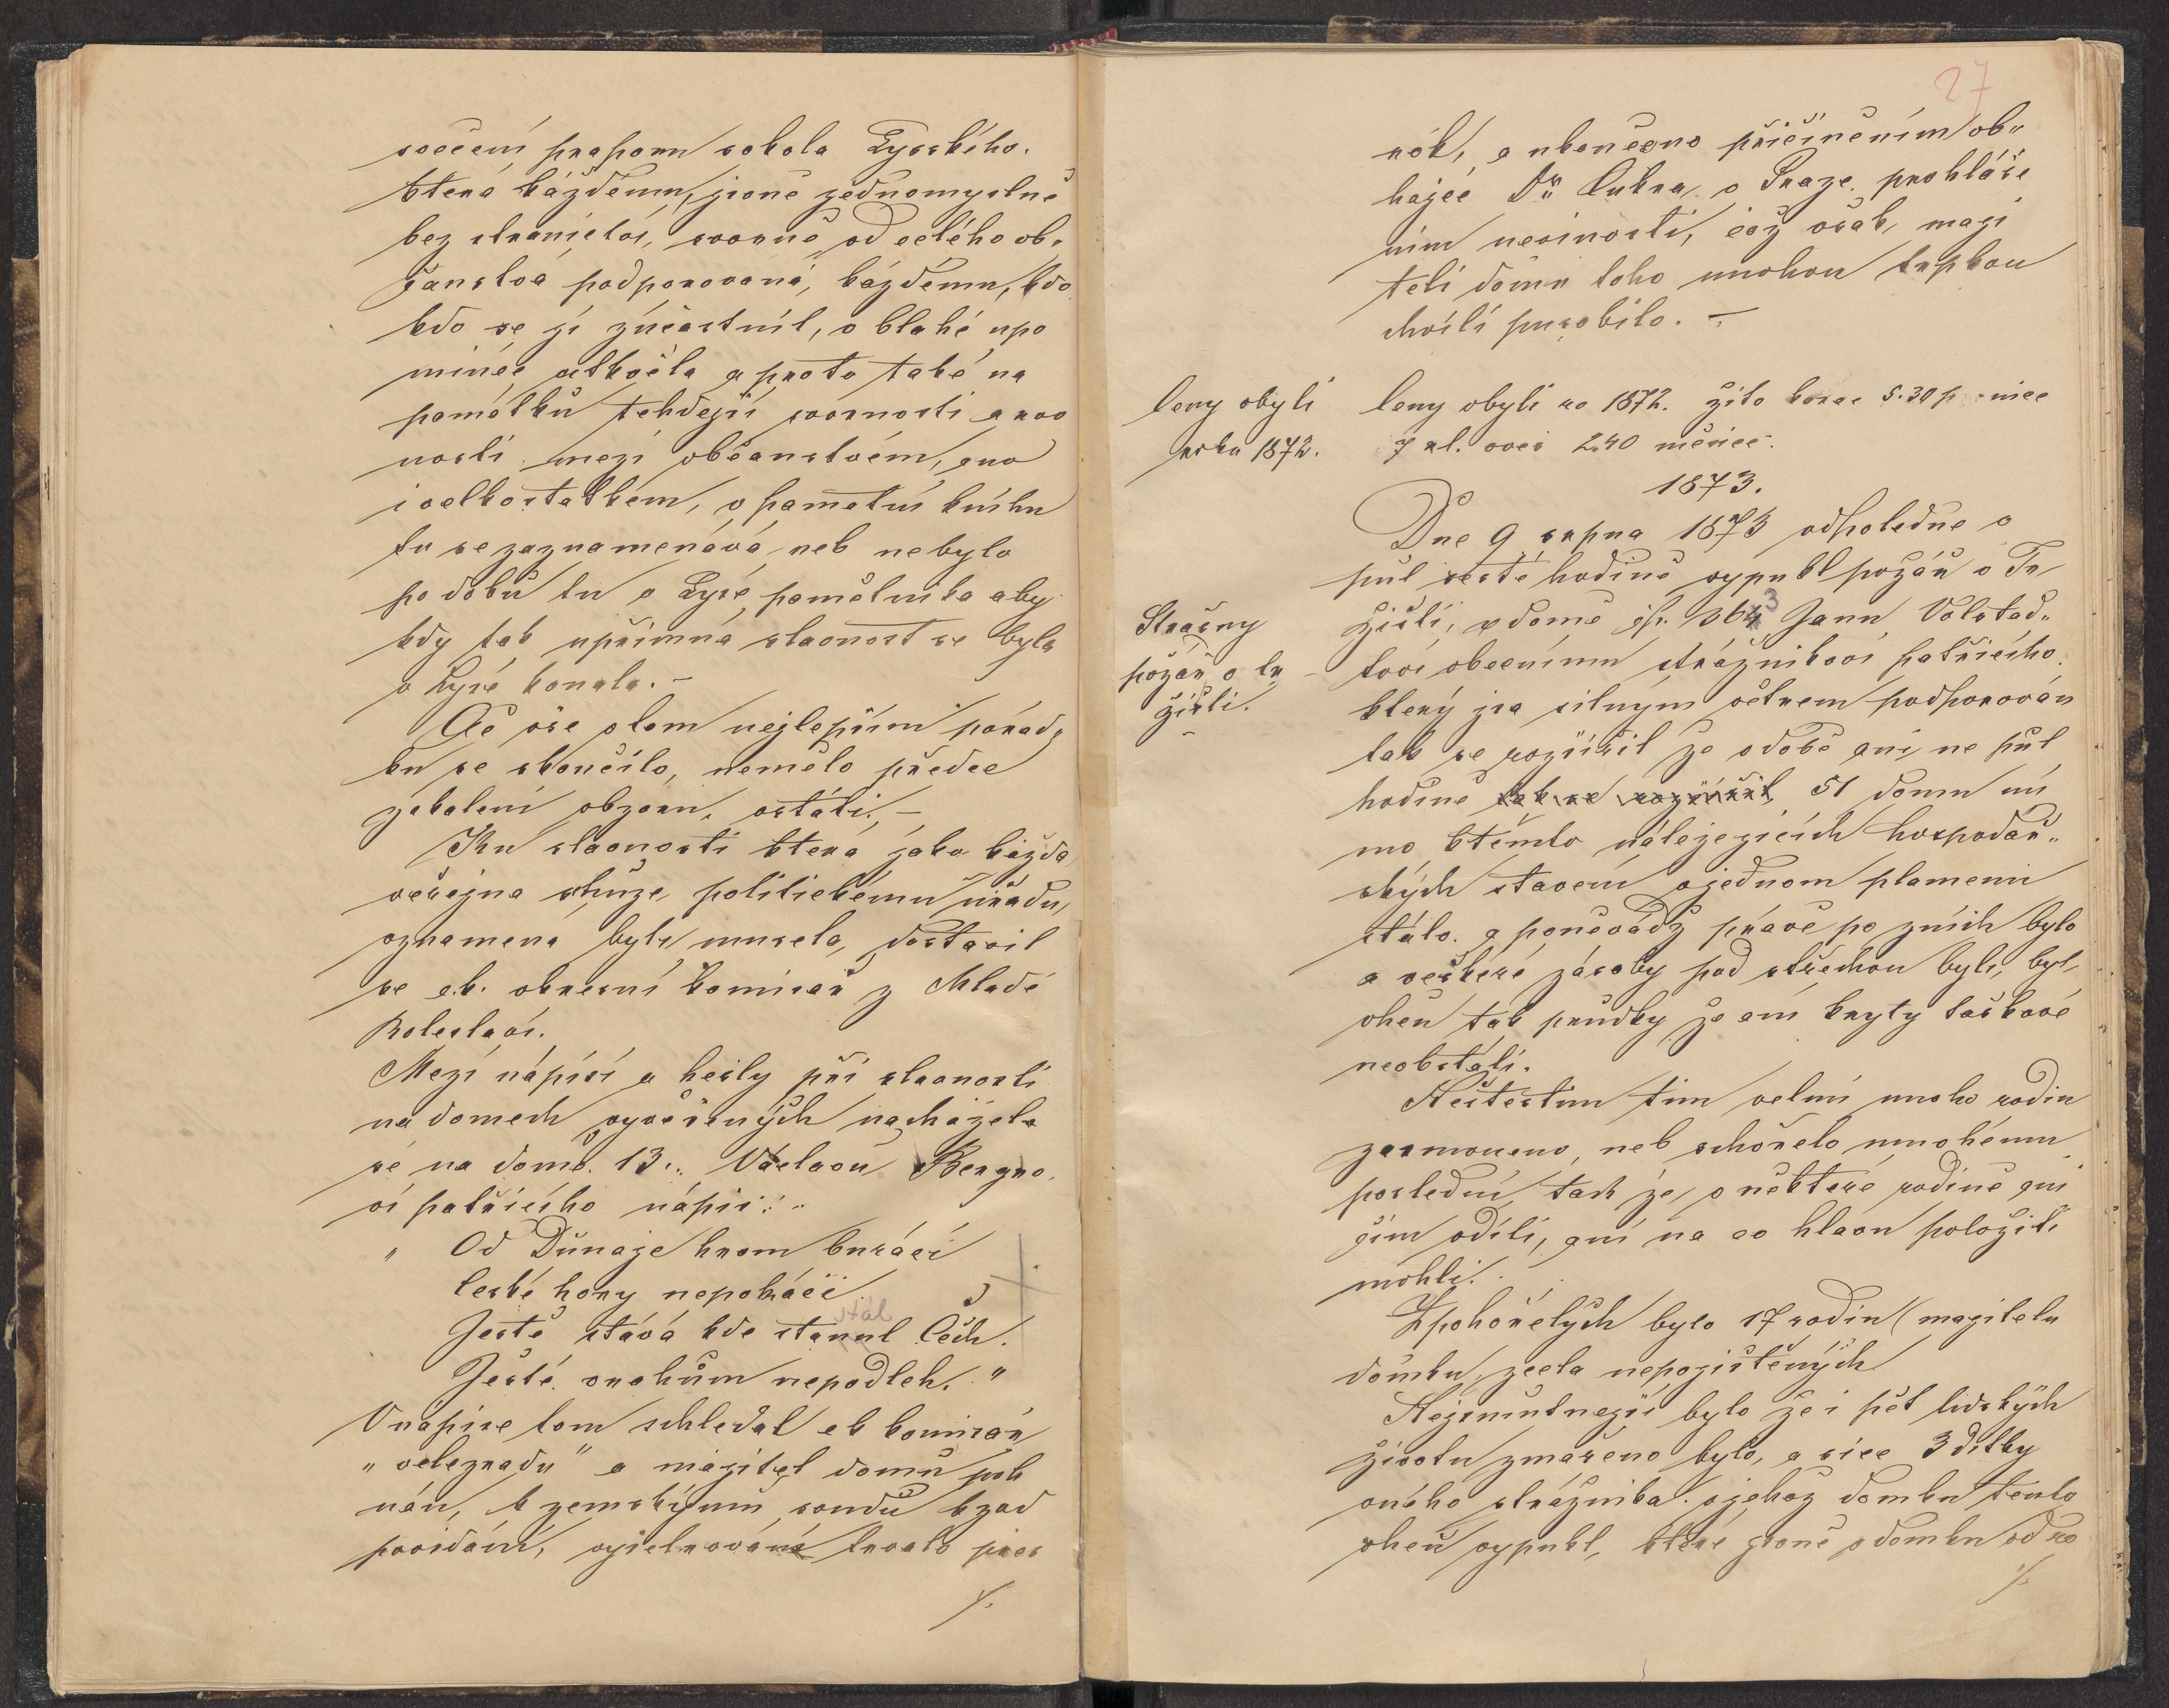 svěcení praporu sokola Lysského.
která každému, jsouc jednomyslně
bez stranictví, svorně od celého ob„
čanstva podporovaná, každému, kdo
kdo se jí zúčastnil, v blahé upo
mínce utkvěla a proto také na
památku tehdejší svornosti a rov
nosti mezi občanstvem, ano
i velkostatkem, v pamětní knihu
tu se zaznamenává, neb nebylo
po dobu tu v Lysé pamětníka aby
kdy tak upřímná slavnost se byla
v Lysé konala. –
Ač vše v tom nejlepším pořád„
ku se skončilo, nemělo předce
zakalení obzoru, ostáti. –
Ku slavnosti která jako každá
veřejna schůze, politickému úřadu,
oznamena býti musela, dostavil
se c.k. okresní komisař z Mladé
Boleslavi.
Mezi nápisi a hesly při slavnosti
na domech vyvěšených nacházela
se na domě. 13.. Václavu Bergro
vi patřicího nápis: „
„ Od Dunaje hrom burácí
České hory nepokácí
stál
Ještě stává kde stanul Čech.
Ještě vrahům nepodleh. "
V nápise tom schledal ck komisař
„velezradu" a majitel domu poh
nán, k zemskýmu soudu k zod
povídání, vyšetrováná trvalo přes
⁒
27
rok, a ukončeno přičiněním ob„
hájce Dra Čukra v Praze, prohláše
ním nevinosti, což však, maji
teli domu toho mnohou trpkou
chvíli pusobilo. –
Ceny obylí
roku 1872.
Ceny obylí ro 1872. žito korec 5.30 pšenice
7 zl. oves 2.40 měřice.
1873.
Dne 9 srpna 1873 odpoledne o
půl šesté hodině vypukl požár v Tr
Strašny
požár v Tr
žišti.
žišti, v domě čp. 364 3 Janu Volstad„
tovi obecnímu strážnikovi patřicího.
který jsa silným větrem podporován
tak se rozšířil že v době ani ne půl
hodině tak se rozšířil 51 domu mi
mo ktěmto náležejících hospodář„
ských stavení v jednom plameni
stálo. a poněvádž právě po žních bylo
a veškeré zásoby pod střechou byli, byl,
oheň tak prudky že ani kryty taškové
neobstáli.
Neštestim tim velmi mnoho rodin
zarmouceno, neb schořelo mnohému
poslední, tach že v některé rodině ani
čim odíti, ani na co hlavu položiti
mohli.
Z pohořelých bylo 17 rodin (majitelu
domku) zcela nepojištěných
Nejsmutnejší bylo že i pět lidských
životu zmařeno bylo, a sice 3 dítky
onoho strážnika. v jehož domku tento
oheň vypukl, které prvé v domku od ro
⁒